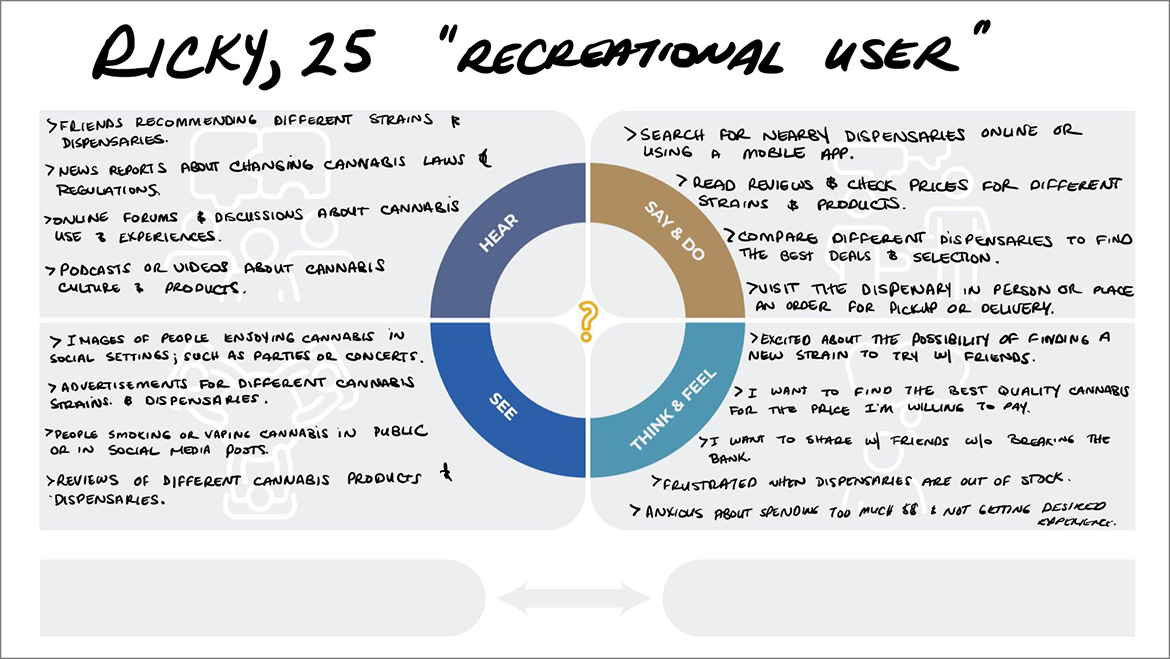 RICKY, 25 "RECREATIONAL USER"
>FRIENDS RECOMMENDING DIFFERENT STRAINS &
DISPENSARIES.
>NEWS REPORTS ABOUT CHANGING CANNABIS LAWS &
REGULATIONS.
>ONLINE FORUMS & DISCUSSIONS ABOUT CANNABIS
USE & EXPERIENCES.
>PODCASTS OR VIDEOS ABOUT CANNABIS
CULTURE & PRODUCTS.
HEAR
SAY & DO
>SEARCH FOR NEARBY DISPENSARIES ONLINE OR
USING A MOBILE APP.
>READ REVIEWS & CHECK PRICES FOR DIFFERENT
STRAINS & PRODUCTS.
>COMPARE DIFFERENT DISPENSARIES TO FIND
THE BEST DEALS & SELECTION.
>VISIT THE DISPENARY IN PERSON OR PLACE
AN ORDER FOR PICKUP OR DELIVERY.
?
>IMAGES OF PEOPLE ENJOYING CANNABIS IN
SOCIAL SETTINGS; SUCH AS PARTIES OR CONCERTS.
>ADVERTISEMENTS FOR DIFFERENT CANNABIS
STRAINS. & DISPENSARIES.
>PEOPLE SMOKING OR VAPING CANNABIS IN PUBLIC
OR IN SOCIAL MEDIA POSTS.
>REVIEWS OF DIFFERENT CANNABIS PRODUCTS &
DISPENSARIES.
SEE
THINK & FEEL
>EXCITED ABOUT THE POSSIBILITY OF FINDING A
NEW STRAIN TO TRY W/ FRIENDS.
>I WANT TO FIND THE BEST QUALITY CANNABIS
FOR THE PRICE I'M WILLING TO PAY.
>I WANT TO SHARE W/ FRIENDS W/O BREAKING THE
BANK.
>FRUSTRATED WHEN DISPENSARIES ARE OUT OF STOCK.
>ANXIOUS ABOUT SPENDING TOO MUCH $$ & NOT GETTING DESIRED
EXPERIENCE.